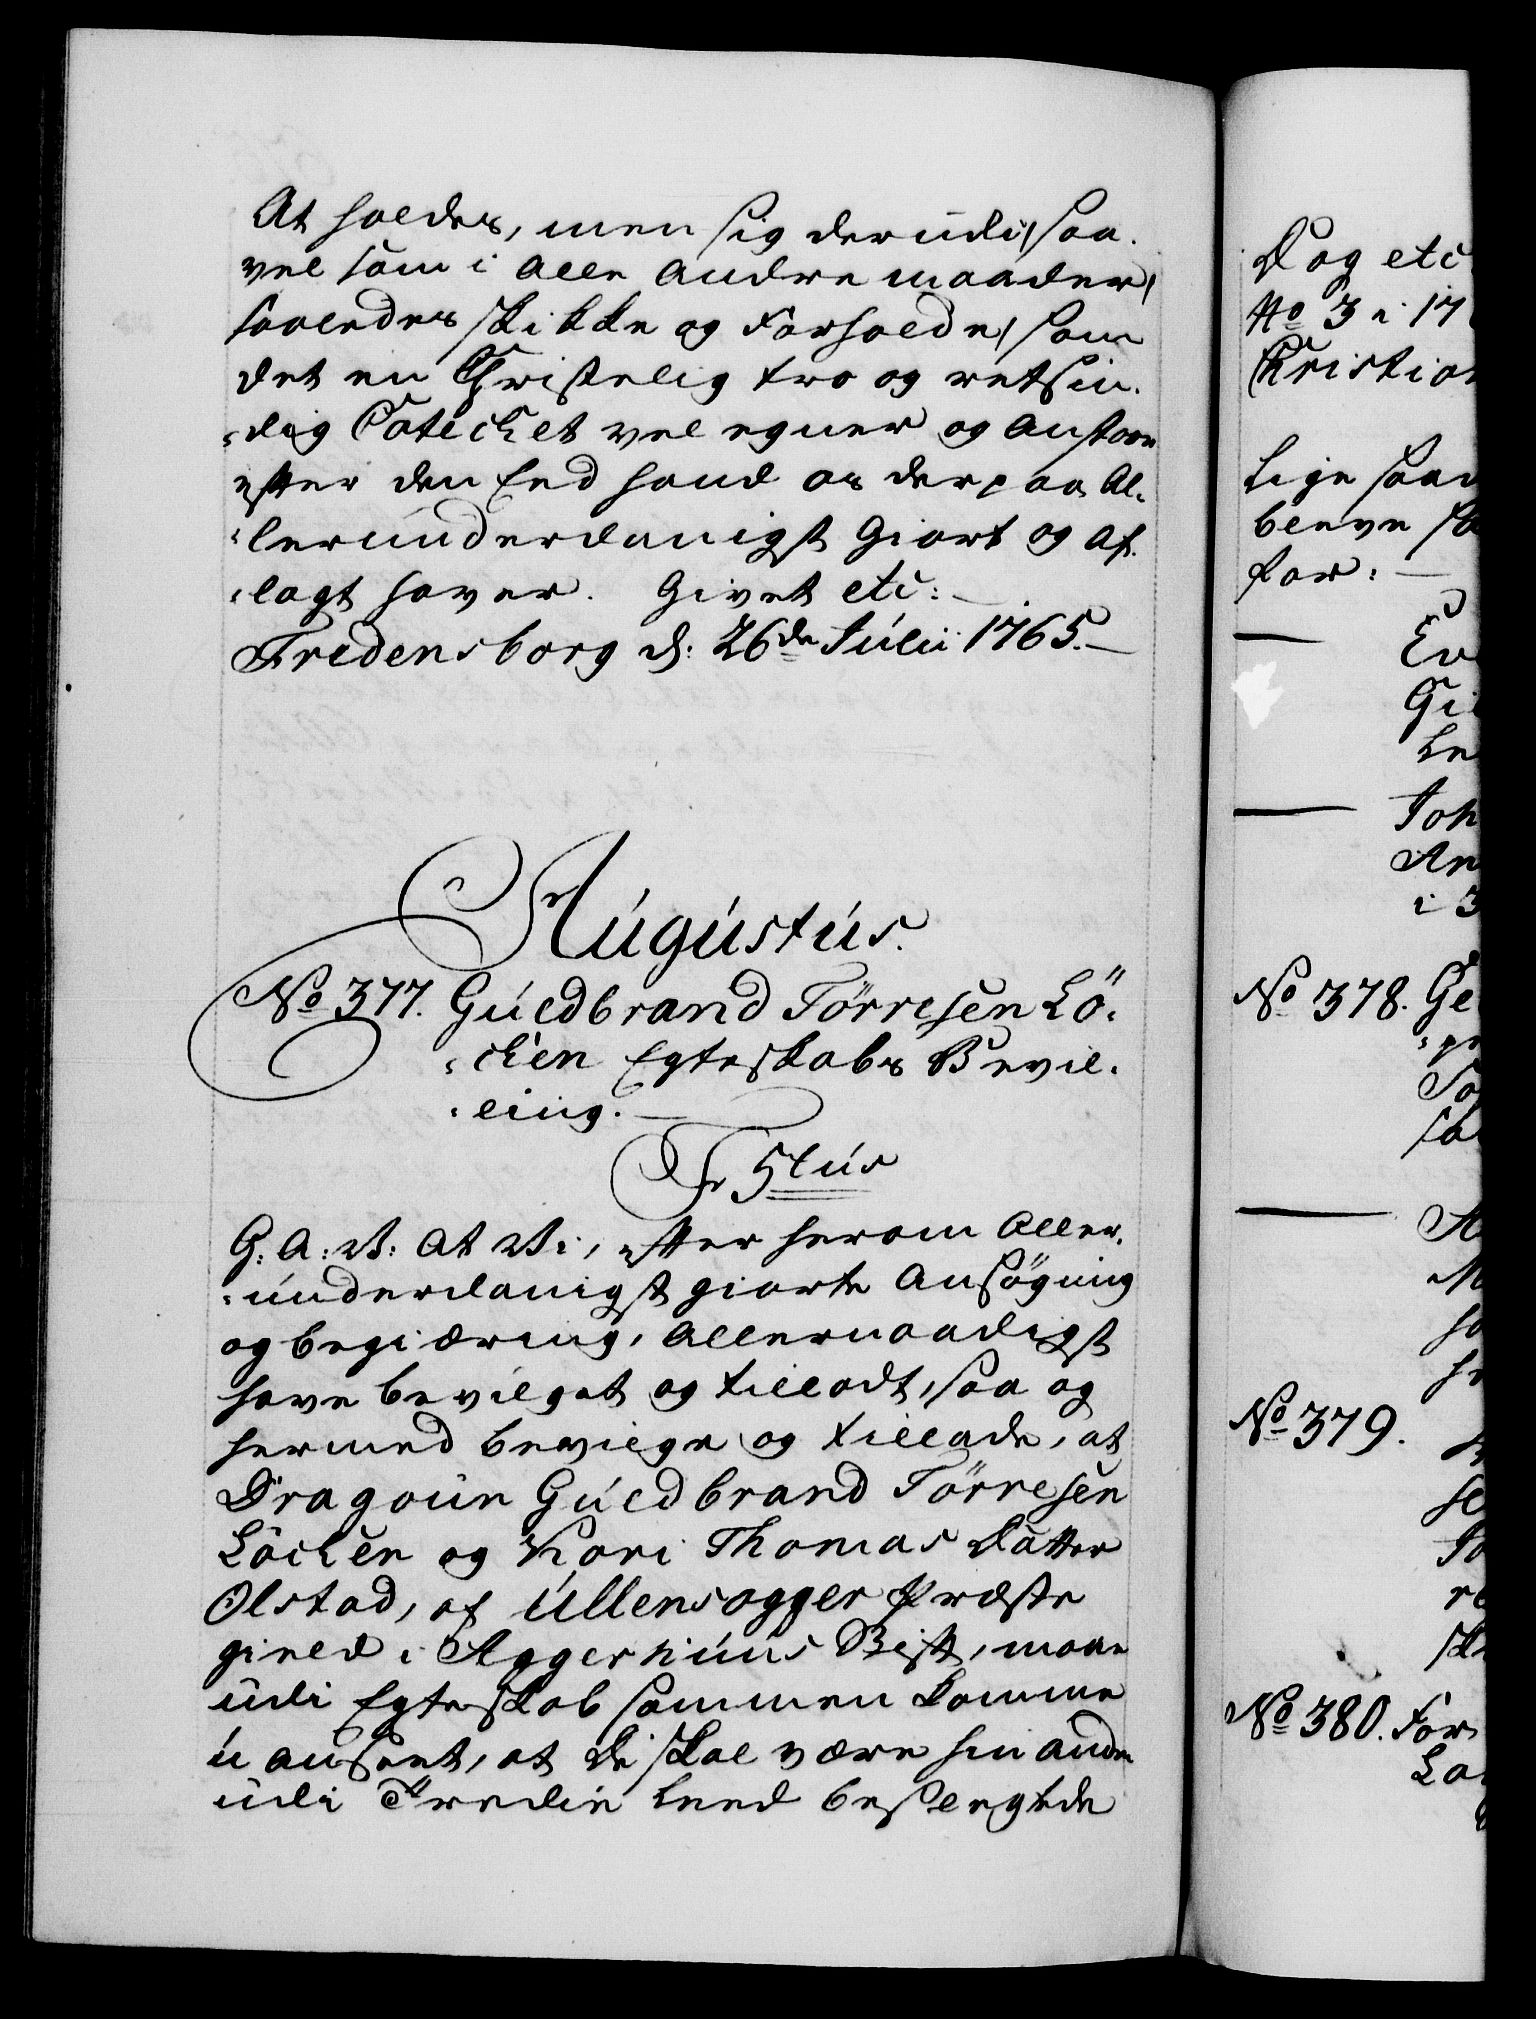 At holdes, men sig derudi, saa-
vel som i alle andre maader,
saaledes skikke og forholde, som
det en Christelig tro og retsin-
dig Catechet vel egner og anstaar
efter den Eed hand os derpaa al-
lerunderdanigst giort og af-
lagt haver. Givet etc:
Fredensborg d: 26de Julii 1765.
Augustus.
No 377. Guldbrand Törresen Lö-
chen Egteskabs Bevil-
ling.
F 5tus
G: A: V: At Vi, efter herom aller-
underdanigst giorte Ansøgning
og begiæring, allernaadigst
have bevilget og tilladt, saa og
hermed bevilge og tillade, at
Dragoun Guldbrand Törresen
Löchen og Kari Thomas Datter
Olstad, af Ullensagger Præste
gield i Aggershuus Stift, maae
udi Egteskab sammen komme
u anseet, at de skal være hin anden
udi Tredie Leed besvogrede
Dog etc
No 3 i 17
Christian
Lige saad
bleve
for:
No 378. Ge
No 379.
No 380. For